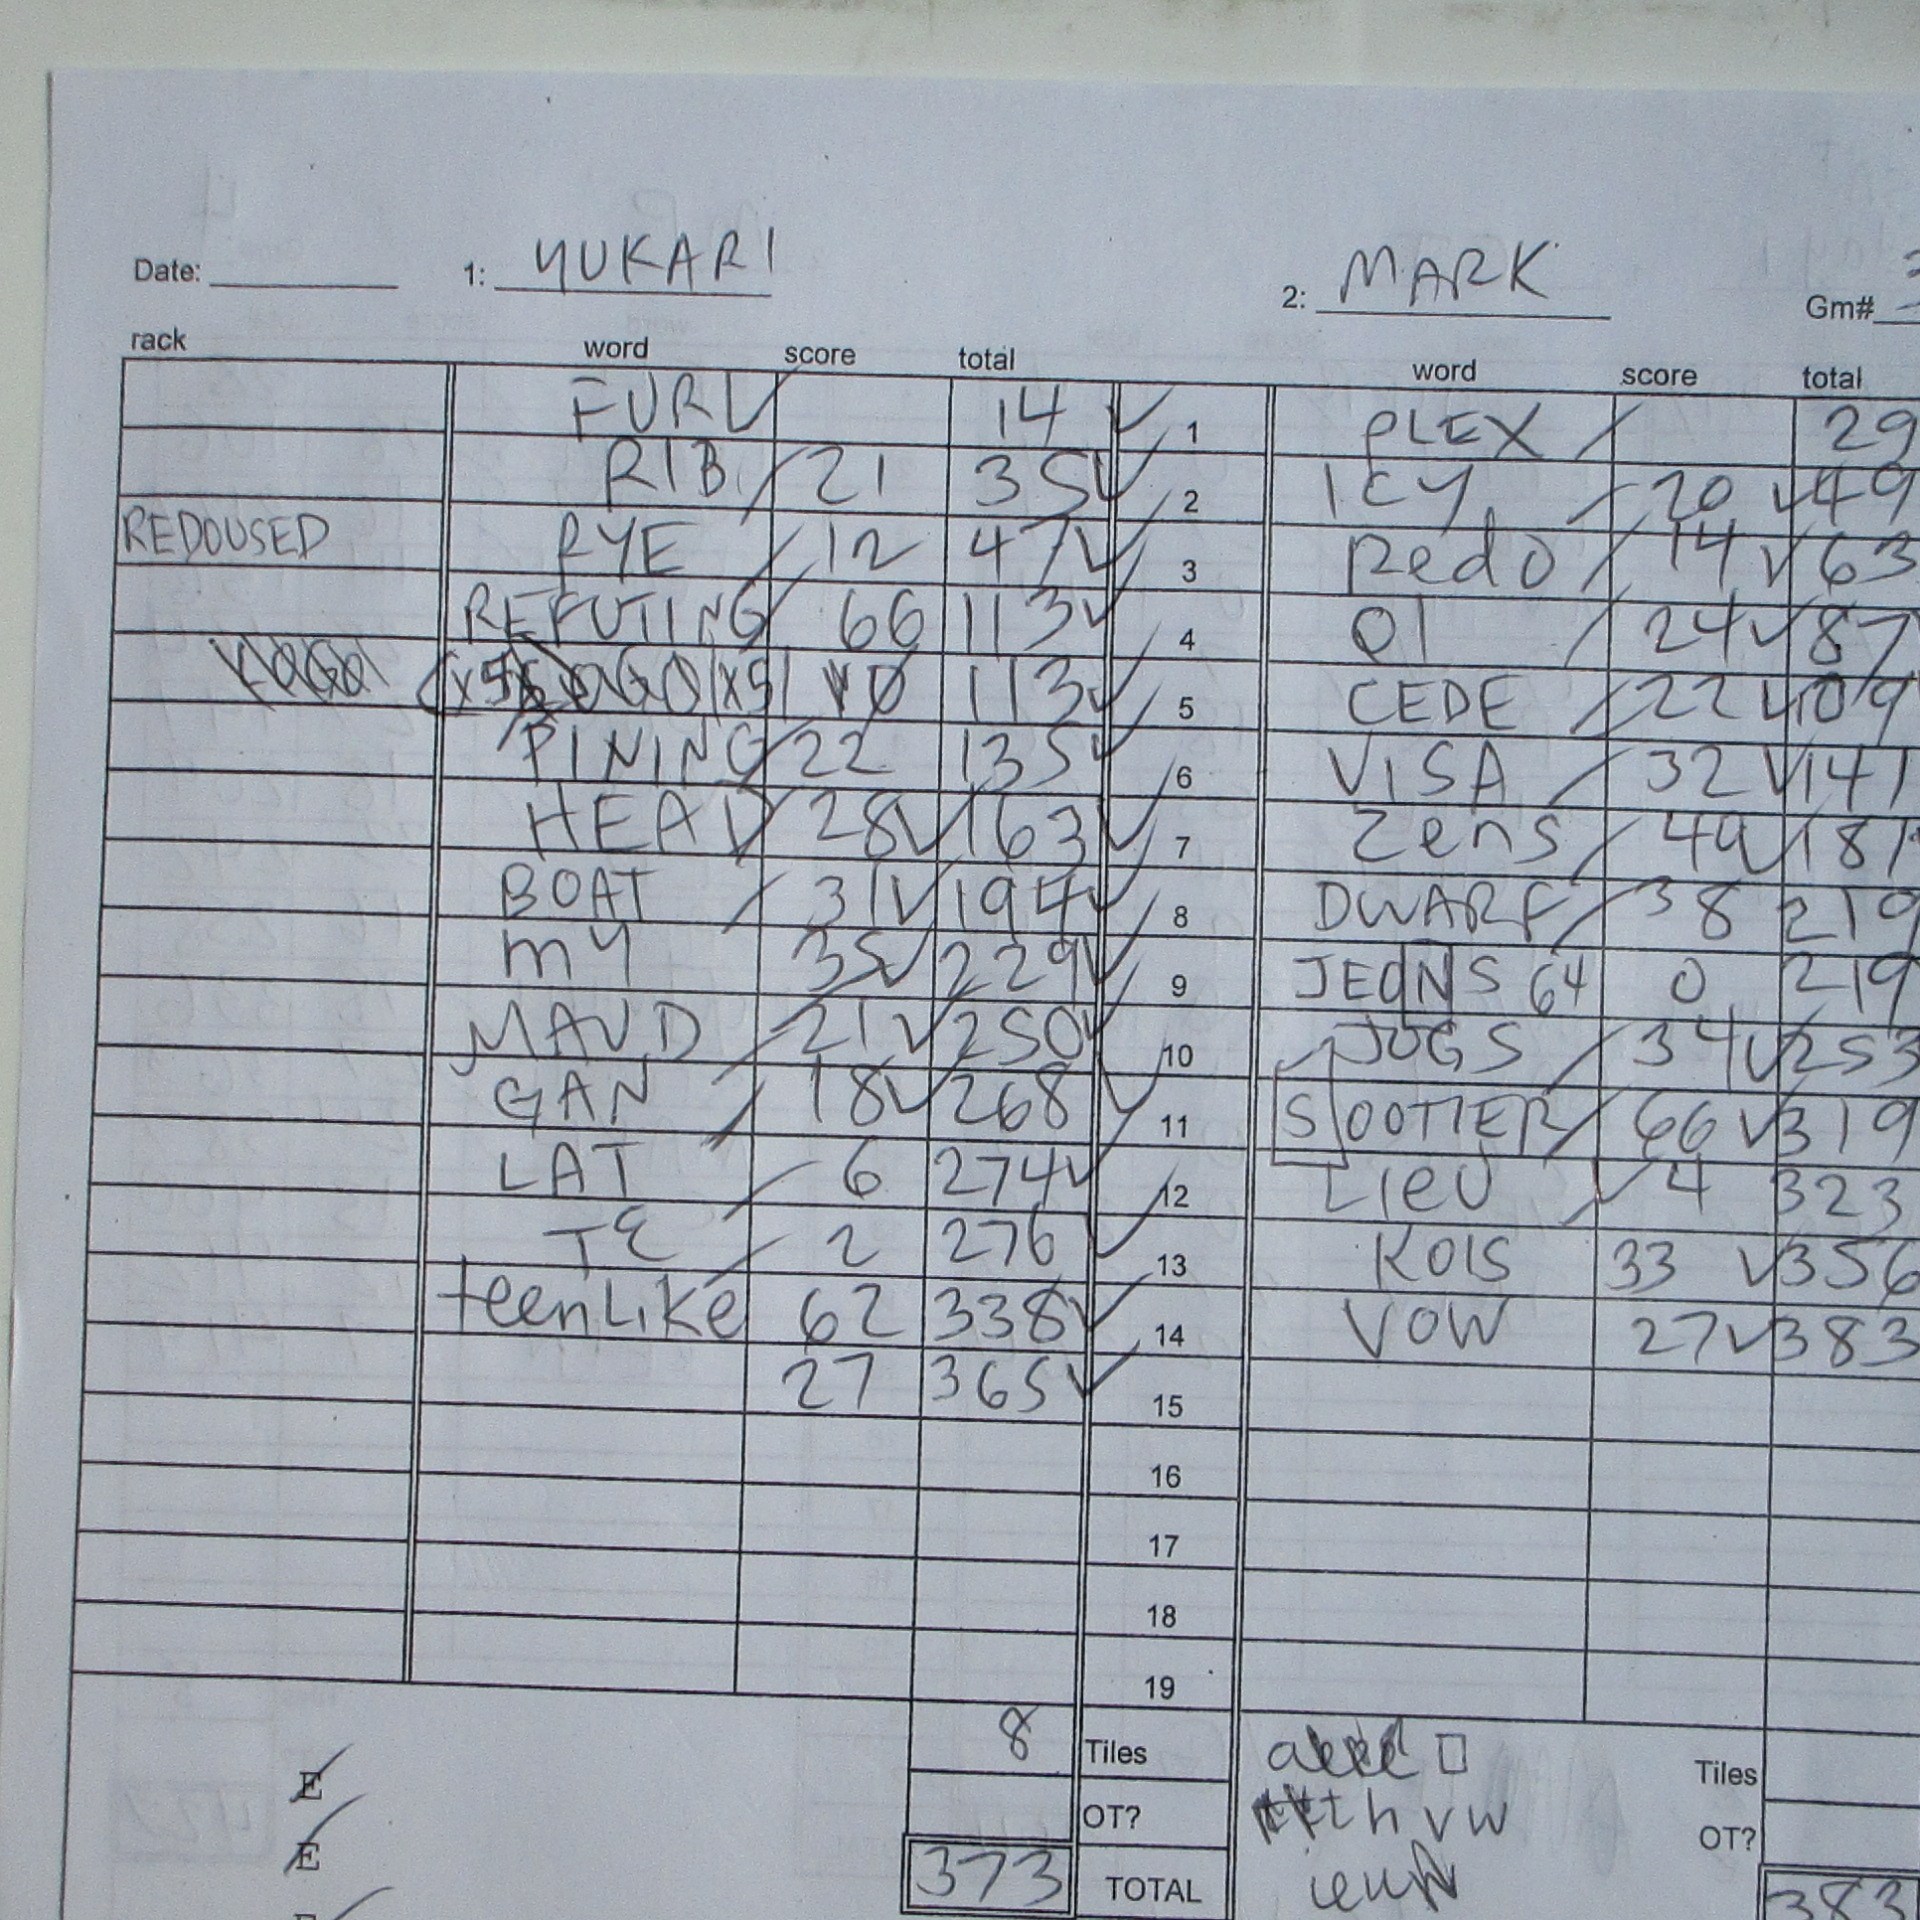 Date: 1: YUKARI 2: MARK Gm#
rack word score total word score total
FURL 14 1 PLEX 29
RIB 21 35 2 ICY 20 49
REDOUSED RYE 12 47 3 Redo 14 63
REFUTING 66 113 4 QI 24 87
0 113 5 CEDE 22 109
PINING 22 135 6 VISA 32 141
HEAV 28 163 7 Zens 40 181
BOAT 31 194 8 DWARF 38 219
MY 35 229 9 JEONS 64 0 219
MAUD 21 250 10 JOGS 34 253
GAN 18 268 11 SOOTIER 66 319
LAT 6 274 12 LIEU 4 323
TE 2 276 13 KOIS 33 356
teenLike 62 338 14 VOW 27 383
27 365 15
16
17
18
19
8 Tiles Tiles
E OT? t h v w OT?
E 373 TOTAL 383